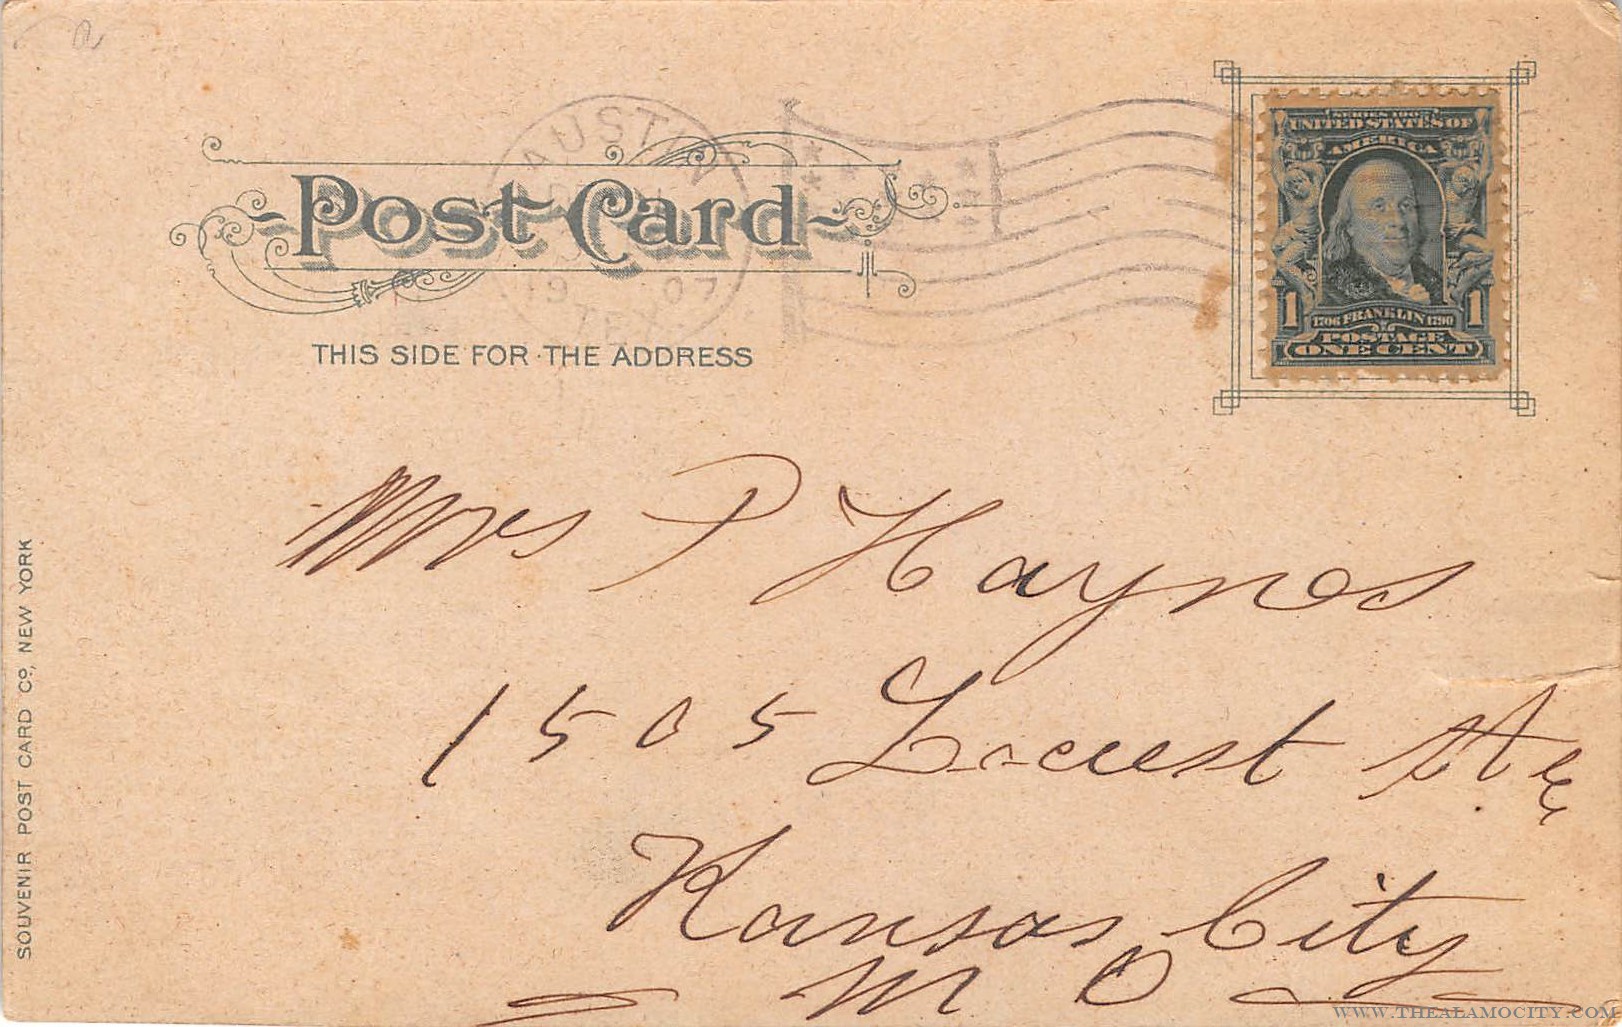 AUSTIN
19 07
TEX.
Post Card
THIS SIDE FOR THE ADDRESS
SERIES 1902
UNITED STATES OF
AMERICA
1 1
1706 FRANKLIN 1790
POSTAGE
ONE CENT
Mrs P Haynes
1505 Locust
Kansas City
MO
SOUVENIR POST CARD Co., NEW YORK
WWW.THEALAMOCITY.COM